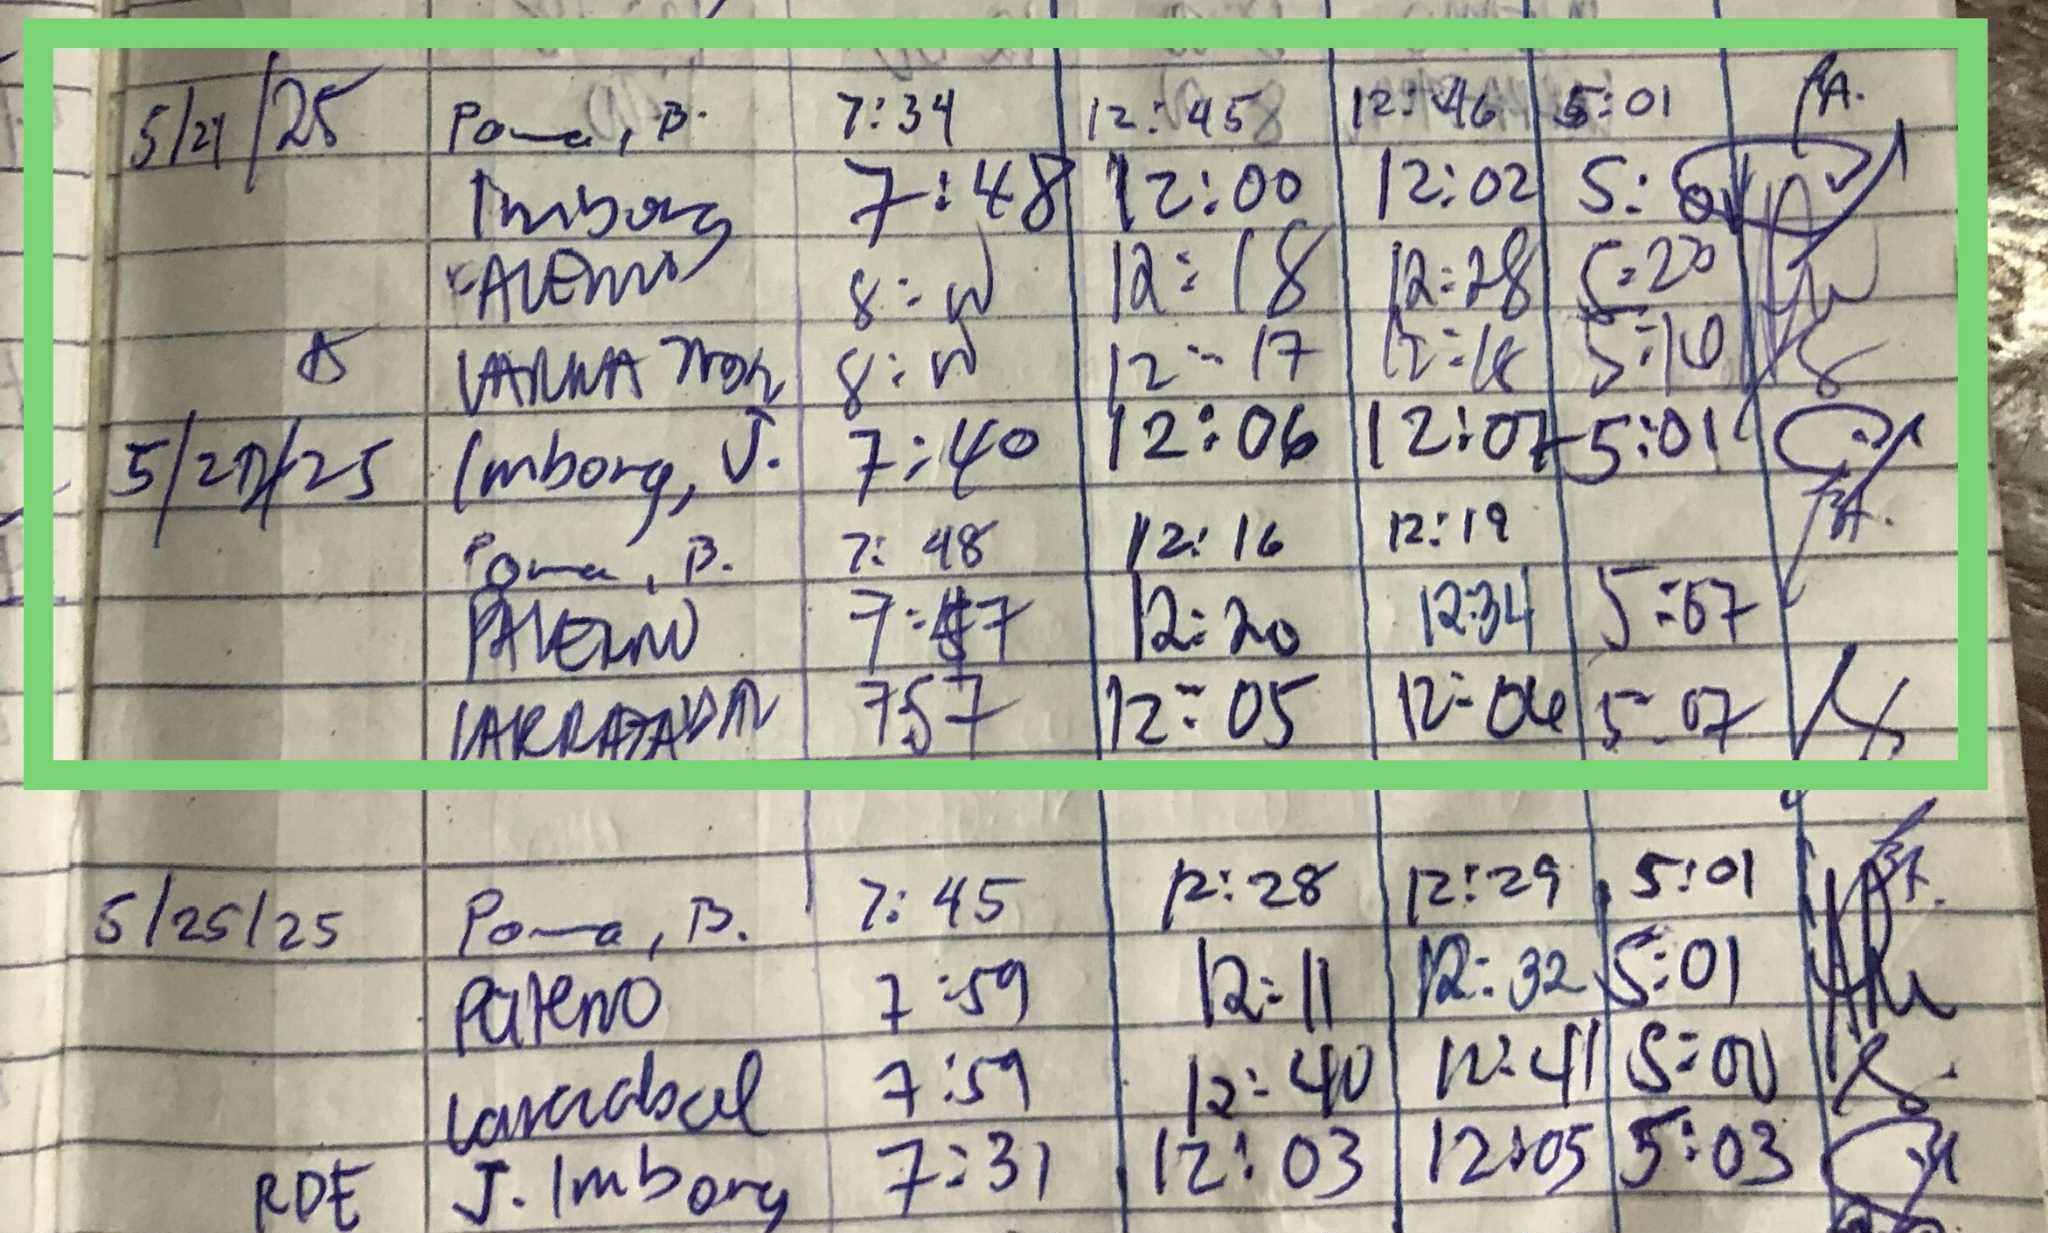 5/21/25 Poma, B. 7:34 12:45 12:46 5:01 PA.
Imborg 7:48 12:00 12:02 5:
8: 12:18 12:28 5:20
8: 12:17 12:18 5:10
5/ /25 Imborg, J. 7:40 12:06 12:07 5:01
Poma, B. 7:48 12:16 12:19
PATERNO 7:47 12:20 12:34 5:07
757 12:05 12:06 5:07
5/25/25 Poma, B. 7:45 12:28 12:29 5:01
Paterno 7:59 12:11 12:32 5:01
7:59 12:40 12:41 5:00
RDE J. Imborg 7:31 12:03 12:05 5:03